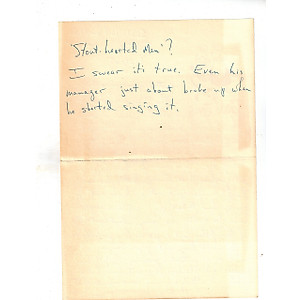 'Stout-hearted Men'?
I swear it's true. Even his
manager just about broke up when
he started singing it.